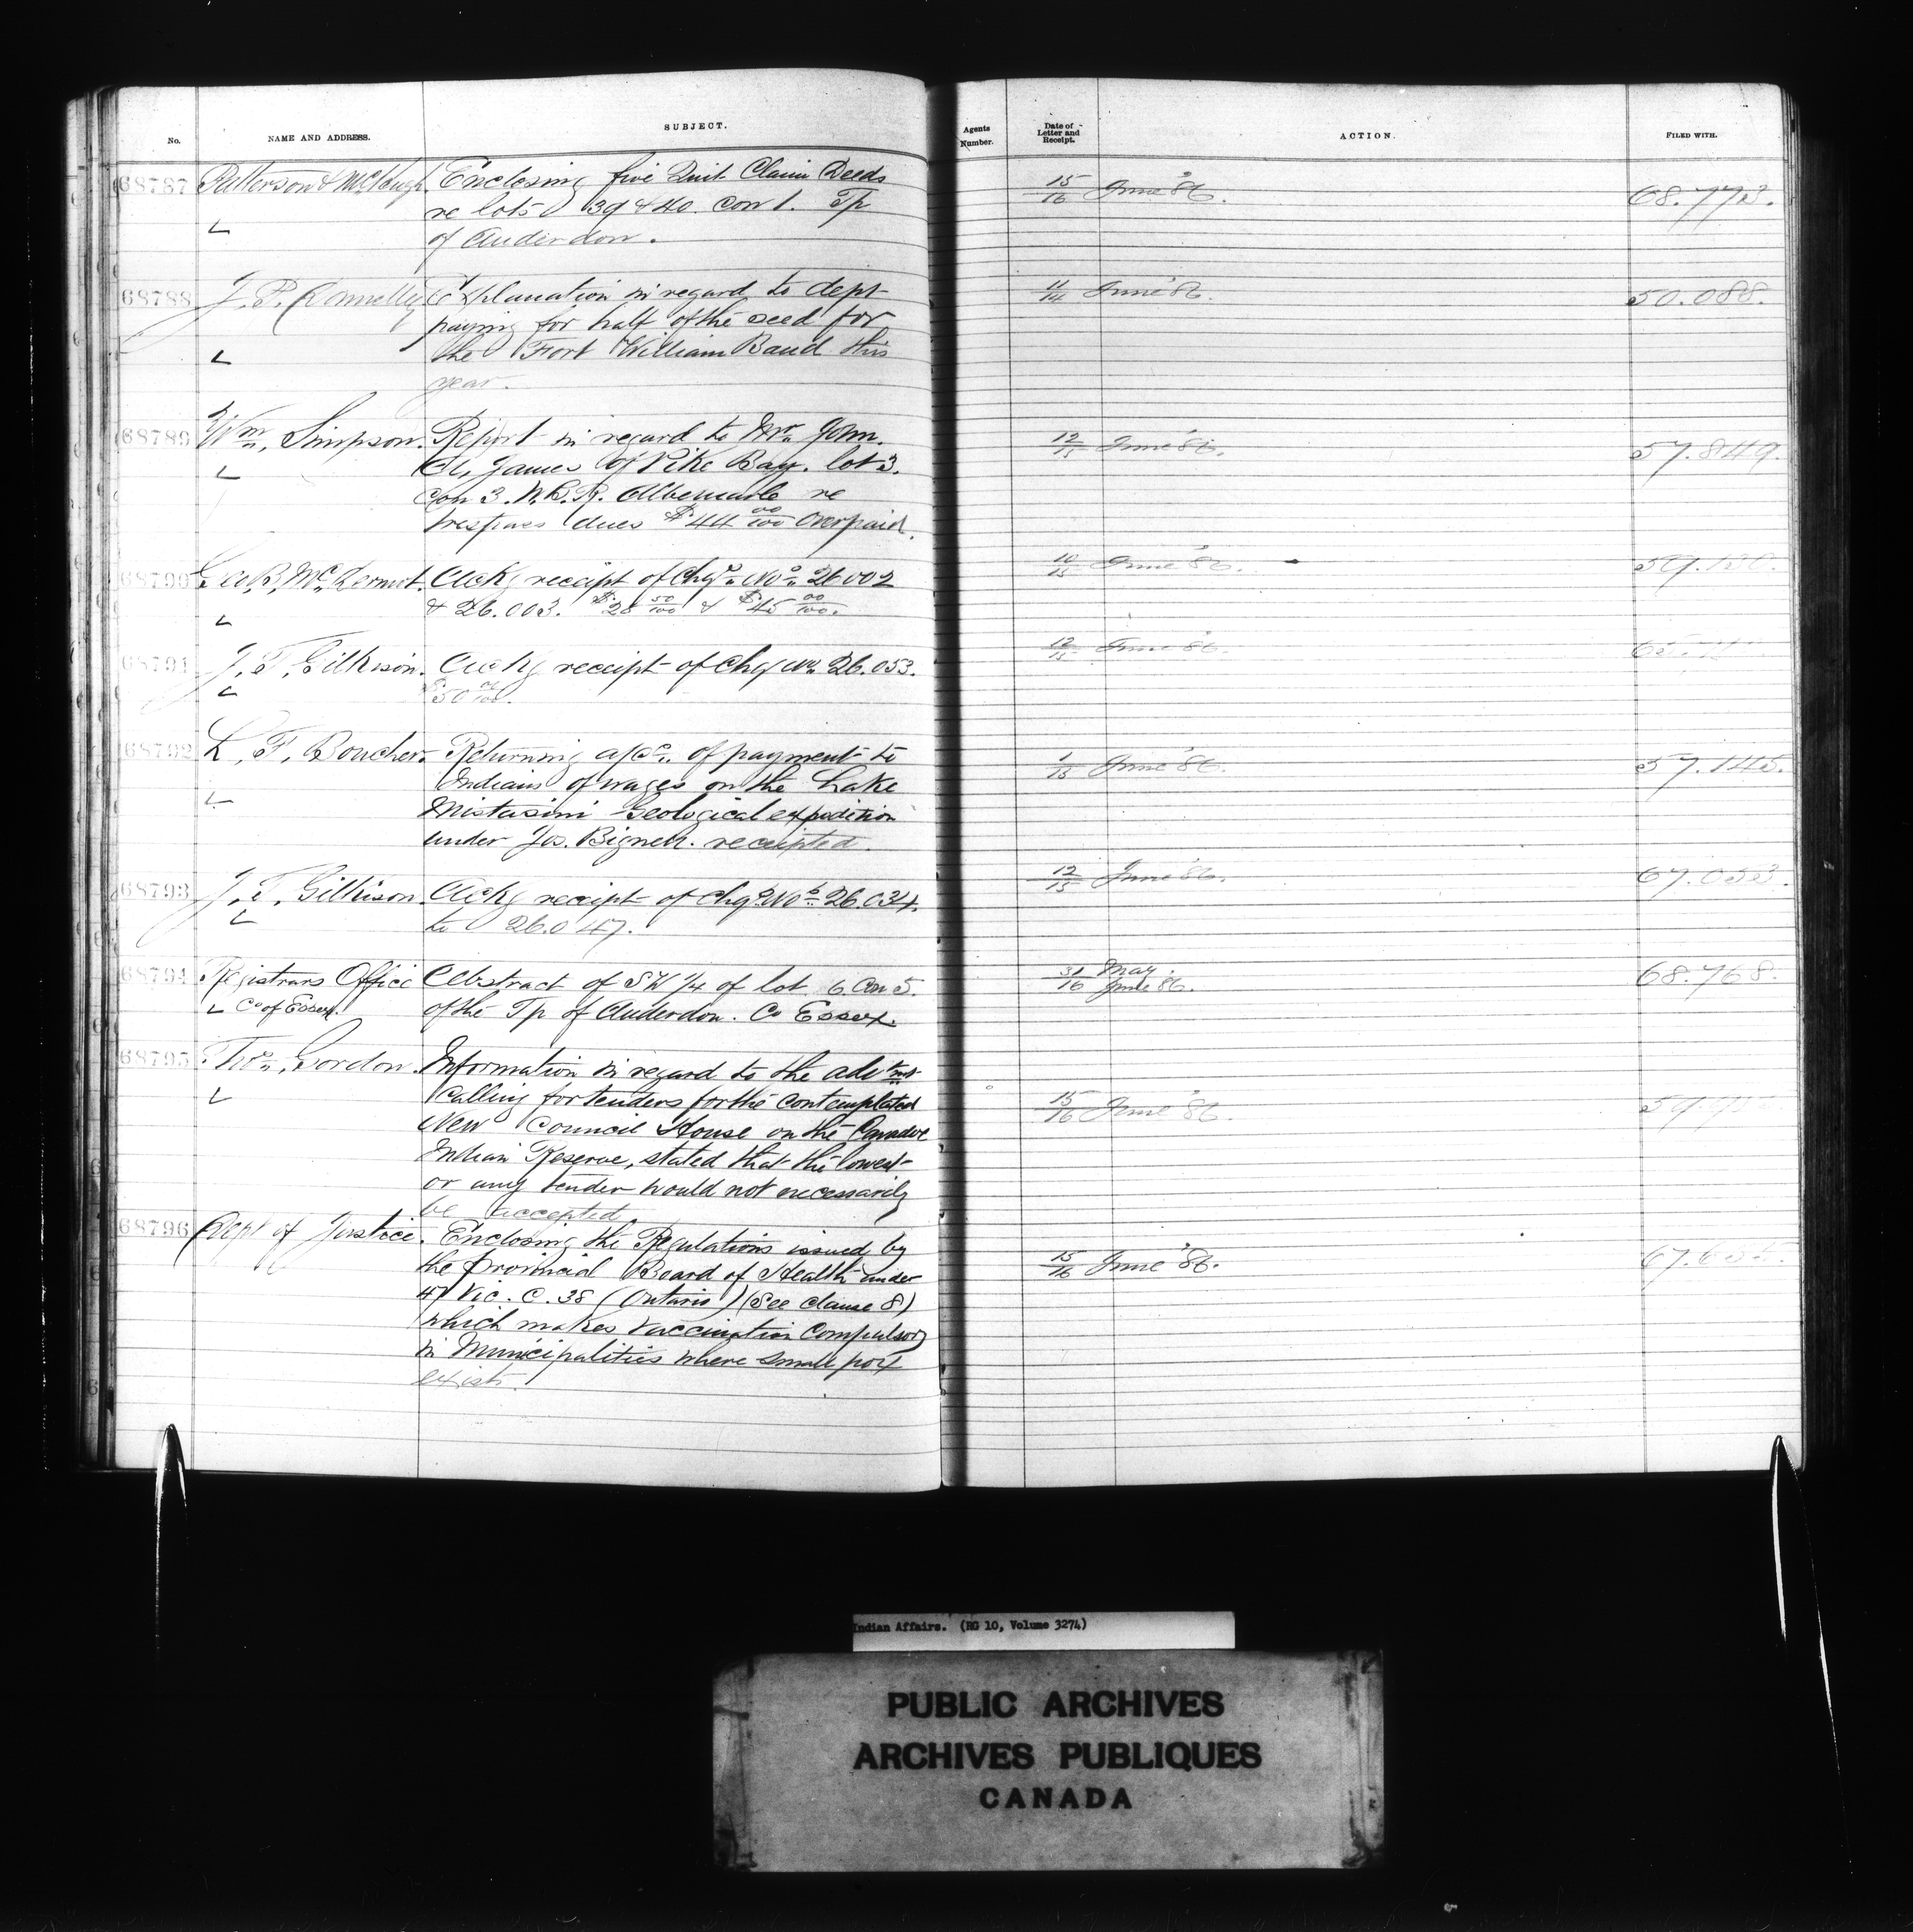 No.
NAME AND ADDRESS.
SUBJECT.
Agents
Number.
Date of
Letter and
Receipt.
ACTION.
FILED WITH.
68787 Patterson & Enclosing five Quit Claim Deeds 15/16 June '86. 68.773.
re lots 39 & 40. Con 1. Tp
of Anderdon.
68788 J. P. Donnelly Explanation in regard to dept 11/14 June '86. 50.088.
paying for half of the seed for
the Fort William Band this
year.
68789 Wm. Simpson. Report in regard to Mr. John. 12/15 June '86. 57.849.
A. James of Pike Bay. lot 3.
Con 3. W.B.R. Albemarle re
trespass dues $44 00/100 overpaid.
68790 Geo. B. McDermot. Ackg receipt of Chqs. Nos. 26002 10/15 June '86. 59.130.
& 26.003. $28 50/100 & $45 00/100.
68791 J. T. Gilkison. Ackg receipt of Chq No. 26.053. 12/15 June '86.
$50 00/100.
68792 L. F. Boucher. Returning a/cs. of payment to 1/15 June '86. 57.145.
Indians of wages on the Lake
Mistasini Geological expedition
under Jos. Bignell. receipted.
68793 J. T. Gilkison. Ackg receipt of Chqs. Nos. 26.034. 12/15 June '86. 67.053.
to 26.047.
68794 Registrars Office Abstract of SW 1/4 of lot 6. Con 5. 31/16 May. June 86. 68.768.
Co of Essex. of the Tp of Anderdon. Co Essex.
68795 Thos. Gordon. Information in regard to the advtmt
calling for tenders for the contemplated 15/16 June '86.
New Council House on the Caradoc
Indian Reserve, stated that the lowest
or any tender would not necessarily
be accepted
68796 Dept of Justice. Enclosing the Regulations issued by 15/16 June '86.
the Provincial Board of Health under
47 Vic. C. 38 (Ontario) (See clause 8)
which makes vaccination Compulsory
in Municipalities where small pox
exists.
Indian Affairs. (RG 10, Volume 3274)
PUBLIC ARCHIVES
ARCHIVES PUBLIQUES
CANADA